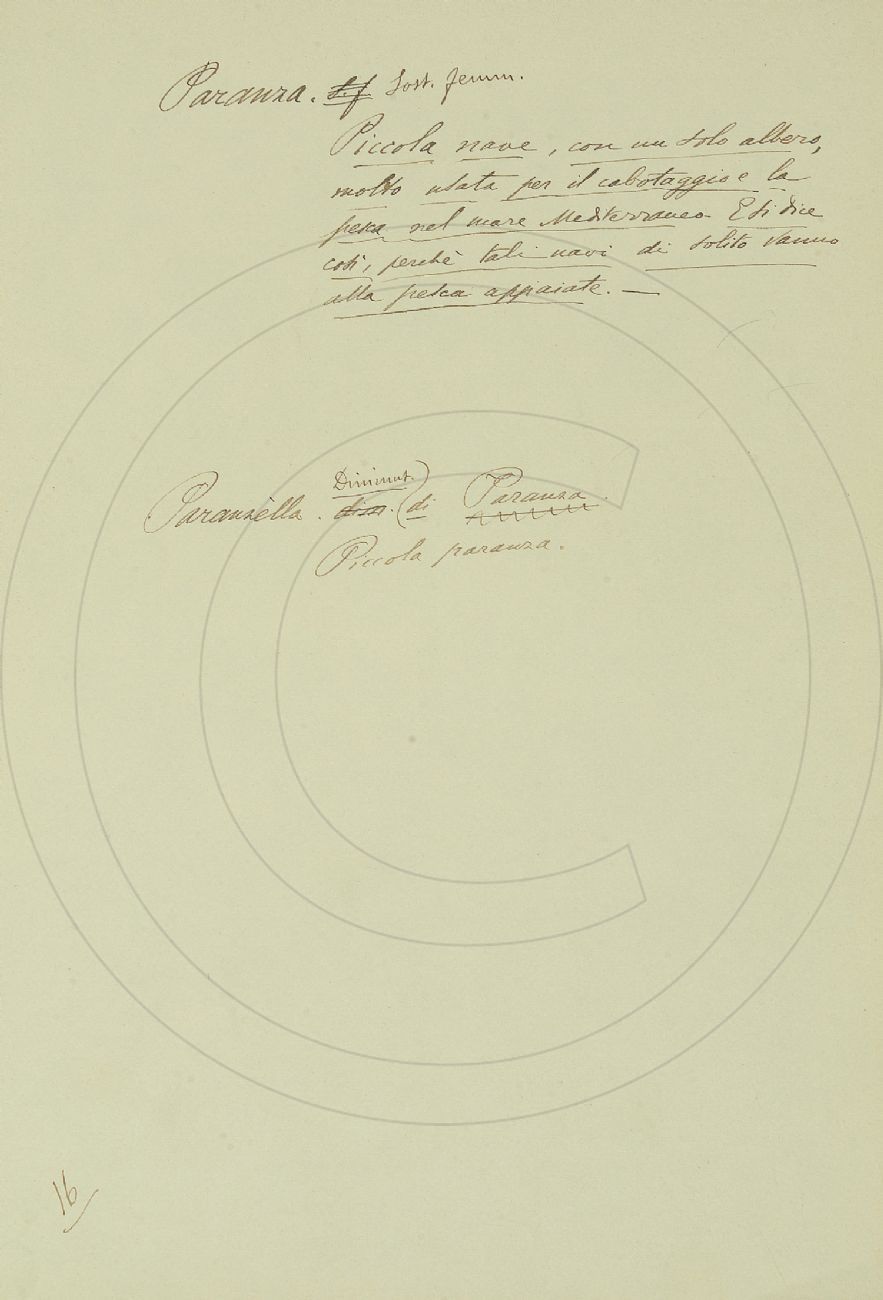 Paranza. S.f. Sost. femm.
Piccola nave, con un solo albero,
molto usata per il cabotaggio e la
pesca nel mare Mediterraneo. E si dice
così, perchè tali navi di solito vanno
alla pesca appaiate. —
Diminut.
Paranzella. dim. (di Paranza.
Piccola paranza.
16